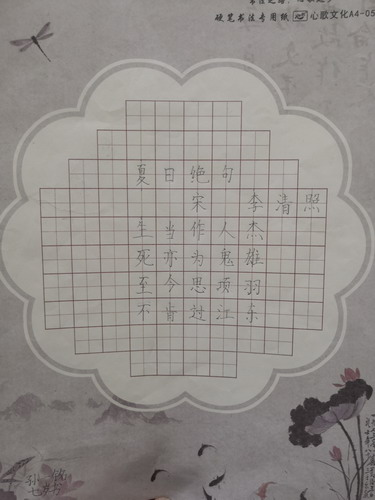 硬笔书法专用纸 心歌文化A4-05
夏日绝句
宋 李清照
生当作人杰
死亦为鬼雄
至今思项羽
不肯过江东